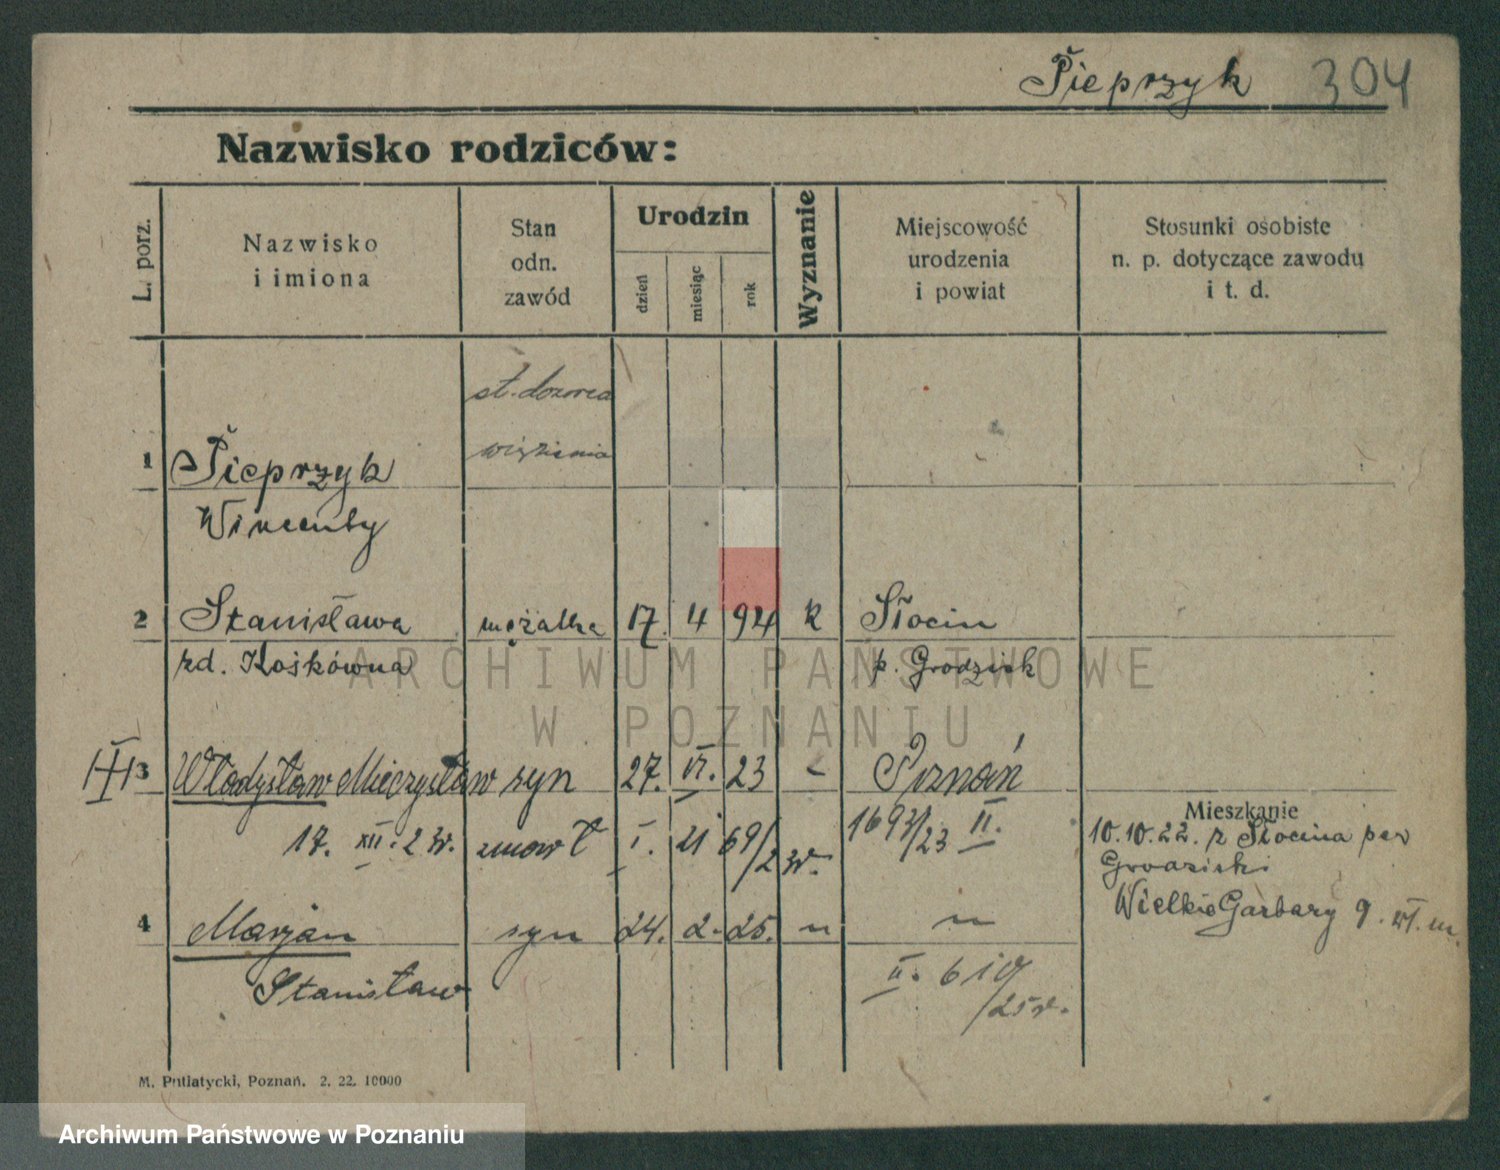 Pieprzyk 304
Nazwisko rodziców:
L. porz.
Nazwisko
i imiona
Stan
odn.
zawód
Urodzin
dzień
miesiąc
rok
Wyznanie
Miejscowość
urodzenia
i powiat
Stosunki osobiste
n. p. dotyczące zawodu
i t. d.
st. dozorca
więzienia
1 Pieprzyk
Wincenty
2 Stanisława mężatka 17. 4 94 k Słocin
rd. Kośkówna p. Grodzisk
ARCHIWUM PAŃSTWOWE
W POZNANIU
3 Władysław Mieczysław syn 27. VI. 23 Poznań
17. XII. 23r. zmarł I. 21 69/23r. 1693/23 II.
Mieszkanie
10.10.22. z Słocina pow
Grodziski
Wielkie Garbary 9. VI. m.
4 Marjan syn 24. 2. 25. " "
Stanisław
II. 619
/25r.
M. Putiatycki, Poznań. 2. 22. 10000
Archiwum Państwowe w Poznaniu